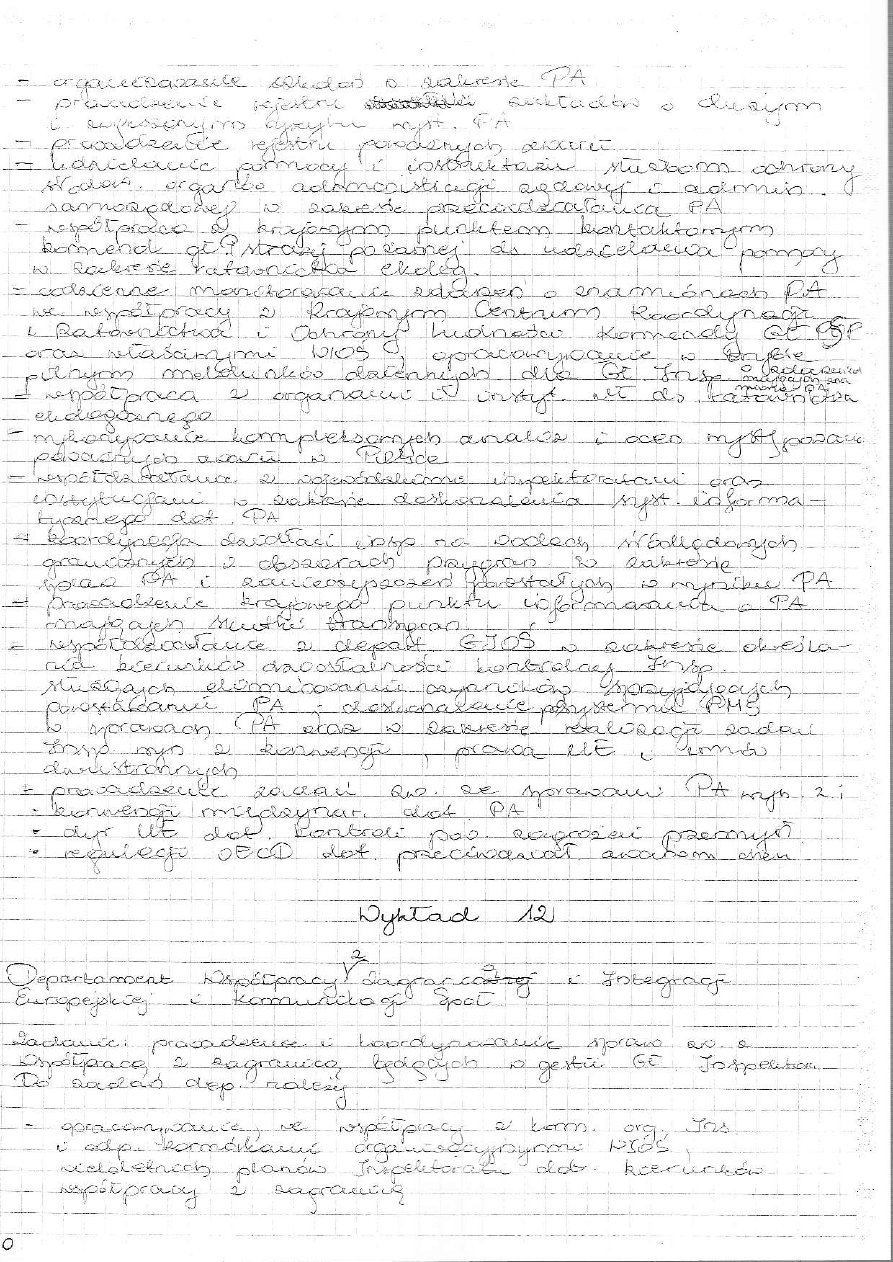 - organizowanie szkoleń w zakresie PA
- prowadzenie rejestru zakładów o dużym
i zwiększonym ryzyku wyst. PA
- prowadzenie rejestru poważnych awarii
- udzielanie pomocy i instruktażu służbom ochrony
środow. organów administracji rządowej i admin.
samorządowej w zakresie przeciwdziałania PA
- współpraca z krajowym punktem kontaktowym
komend. gł. P straży pożarnej ds udzielania pomocy
w zakresie ratownictwa ekolog.
- codzienne monitorowanie zdarzeń o znamionach PA
we współpracy z Krajowym Centrum Koordynacji
i Ratownictwa i Ochrony Ludności Komendy Gł PSP
oraz właściwymi WIOŚ, opracowywanie w trybie
pilnym meldunków dziennych dla Gł. Insp. o zdarzeniach mających znamiona PA
- współpraca z organami i instyt. UE ds ratownictwa
ekologicznego
- wykonywanie kompleksowych analiz i ocen występowania
poważnych awarii w Polsce
- współdziałanie z wojewódzkimi inspektoratami oraz
instytucjami w zakresie doskonalenia syst. informa-
tycznego dot. PA
- koordynacja działań insp na wodach śródlądowych
granicznych i obszarach przygran. w zakresie
spraw PA i zanieczyszczeń powstałych w wyniku PA
- prowadzenie krajowego punktu informowania o PA
mających skutki transgran.
- współdziałanie z depart. GIOŚ w zakresie określa-
nia kierunków działalności kontrolnej Insp.
służących eliminowaniu czynników sprzyjających
powstawaniu PA i doskonalenie systemu PMŚ
w sprawach PA oraz w zakresie realizacji zadań
Insp wyn z konwencji, prawa UE i umów
dwustronnych
- prowadzenie zadań zw. ze sprawami PA wyn z:
• konwencji międzynar. dot. PA
• dyr UE dot. kontroli pow. zagrożeń przemysł.
• regulacji OECD dot. przeciwdział. awariom chem
Wykład 12
Departament Współpracy z Zagranicą i Integracji
Europejskiej i Komunikacji Społ
Zadania: prowadzenie i koordynowanie spraw zw. z
współpracą z zagranicą, będących w gestii Gł. Inspektora.
Do zadań dep. należy
- opracowywanie, we współpracy z kom. org. Ins
i odp. komórkami organizacyjnymi WIOŚ,
wieloletnich planów Inspektoratu dot. kierunków
współpracy z zagranicą
0